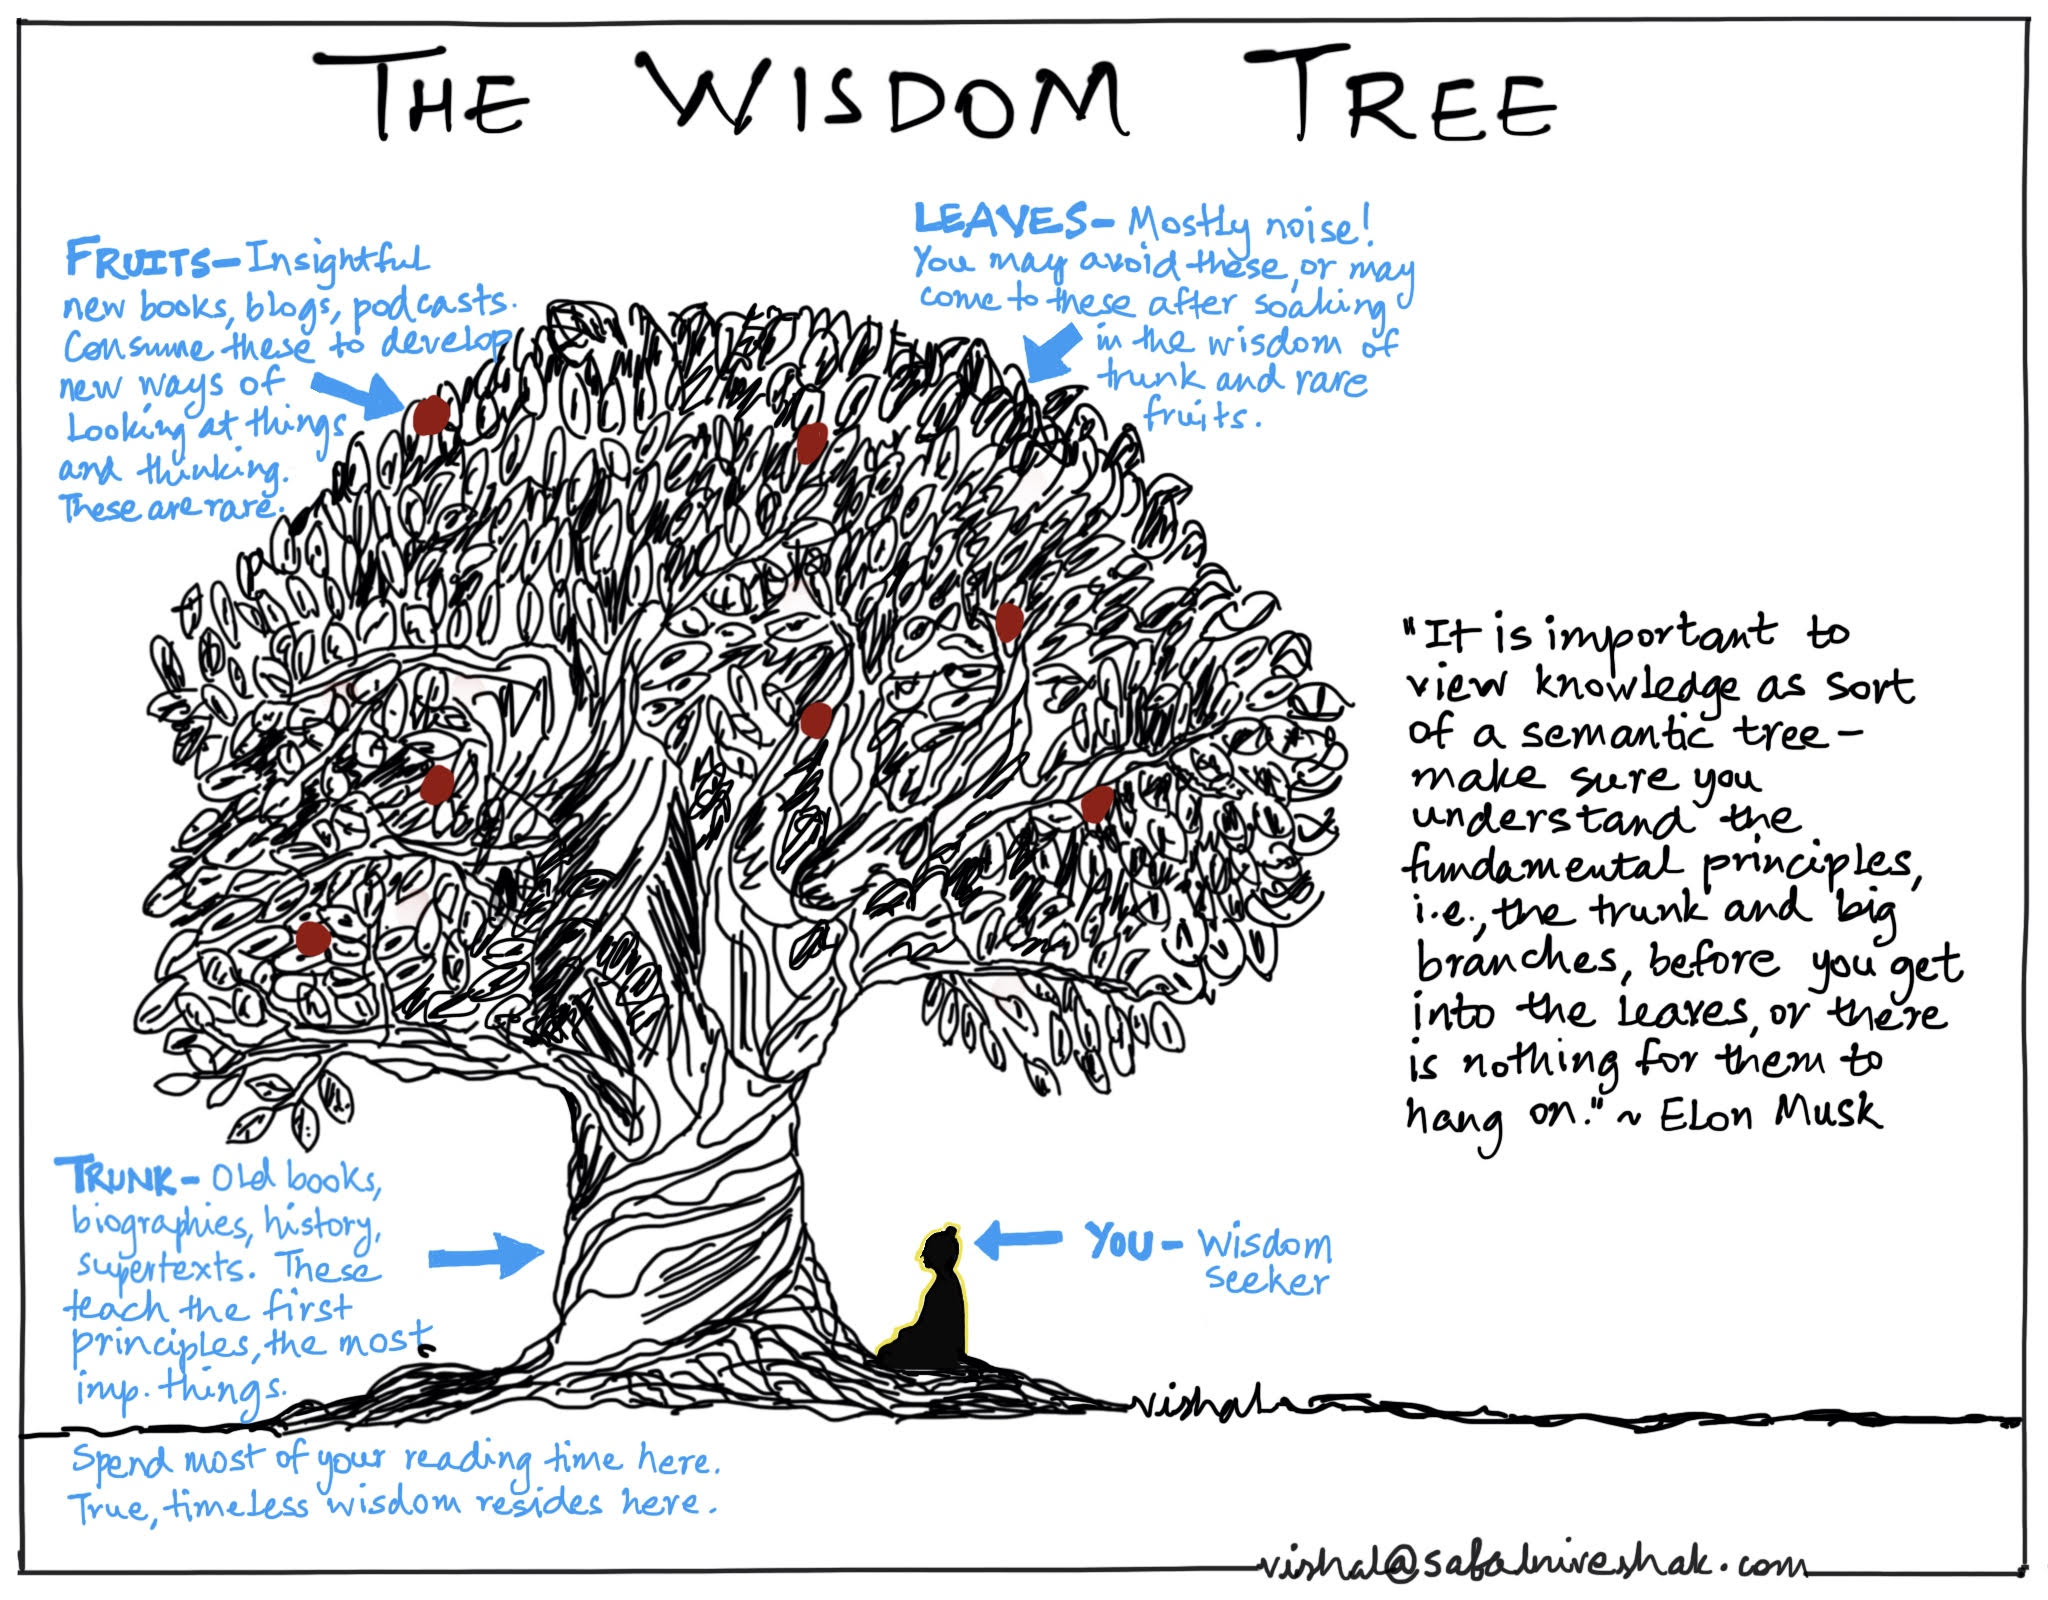 THE WISDOM TREE
FRUITS - Insightful
new books, blogs, podcasts.
Consume these to develop
new ways of
looking at things
and thinking.
These are rare.
LEAVES - Mostly noise!
You may avoid these, or may
come to these after soaking
in the wisdom of
trunk and rare
fruits.
"It is important to
view knowledge as sort
of a semantic tree -
make sure you
understand the
fundamental principles,
i.e., the trunk and big
branches, before you get
into the leaves, or there
is nothing for them to
hang on." ~ Elon Musk
TRUNK - Old books,
biographies, history,
supertexts. These
teach the first
principles, the most
imp. things.
YOU - Wisdom
seeker
vishal
Spend most of your reading time here.
True, timeless wisdom resides here.
vishal@safalniveshak.com